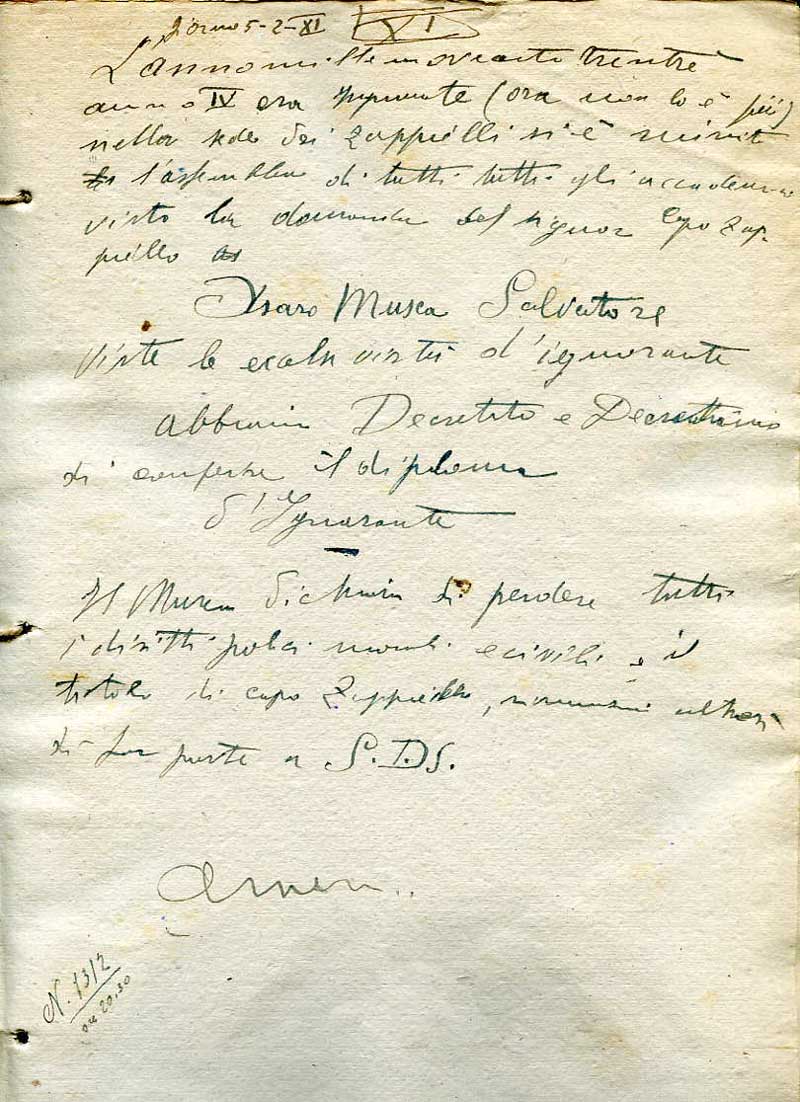 giorno 5-2-XI XI
L'anno mille novecento trentre
anno IV era Ignorante (ora non lo è più)
nella sede dei Zappielli si è riunit
l'assemblea di tutti tutti gli
visto la domanda del signor Capo Zap-
piello
Musca Salvatore
viste le virtù d'ignorante
abbiam Decretato e Decretiamo
di conferire il diploma
d'Ignorante
Il Musca dichiara di perdere tutti
i diritti morali e civili e il
titolo di capo Zappiello, altresì
di far parte a S.D.S.
Amen..
N. 1312
ore 20,30